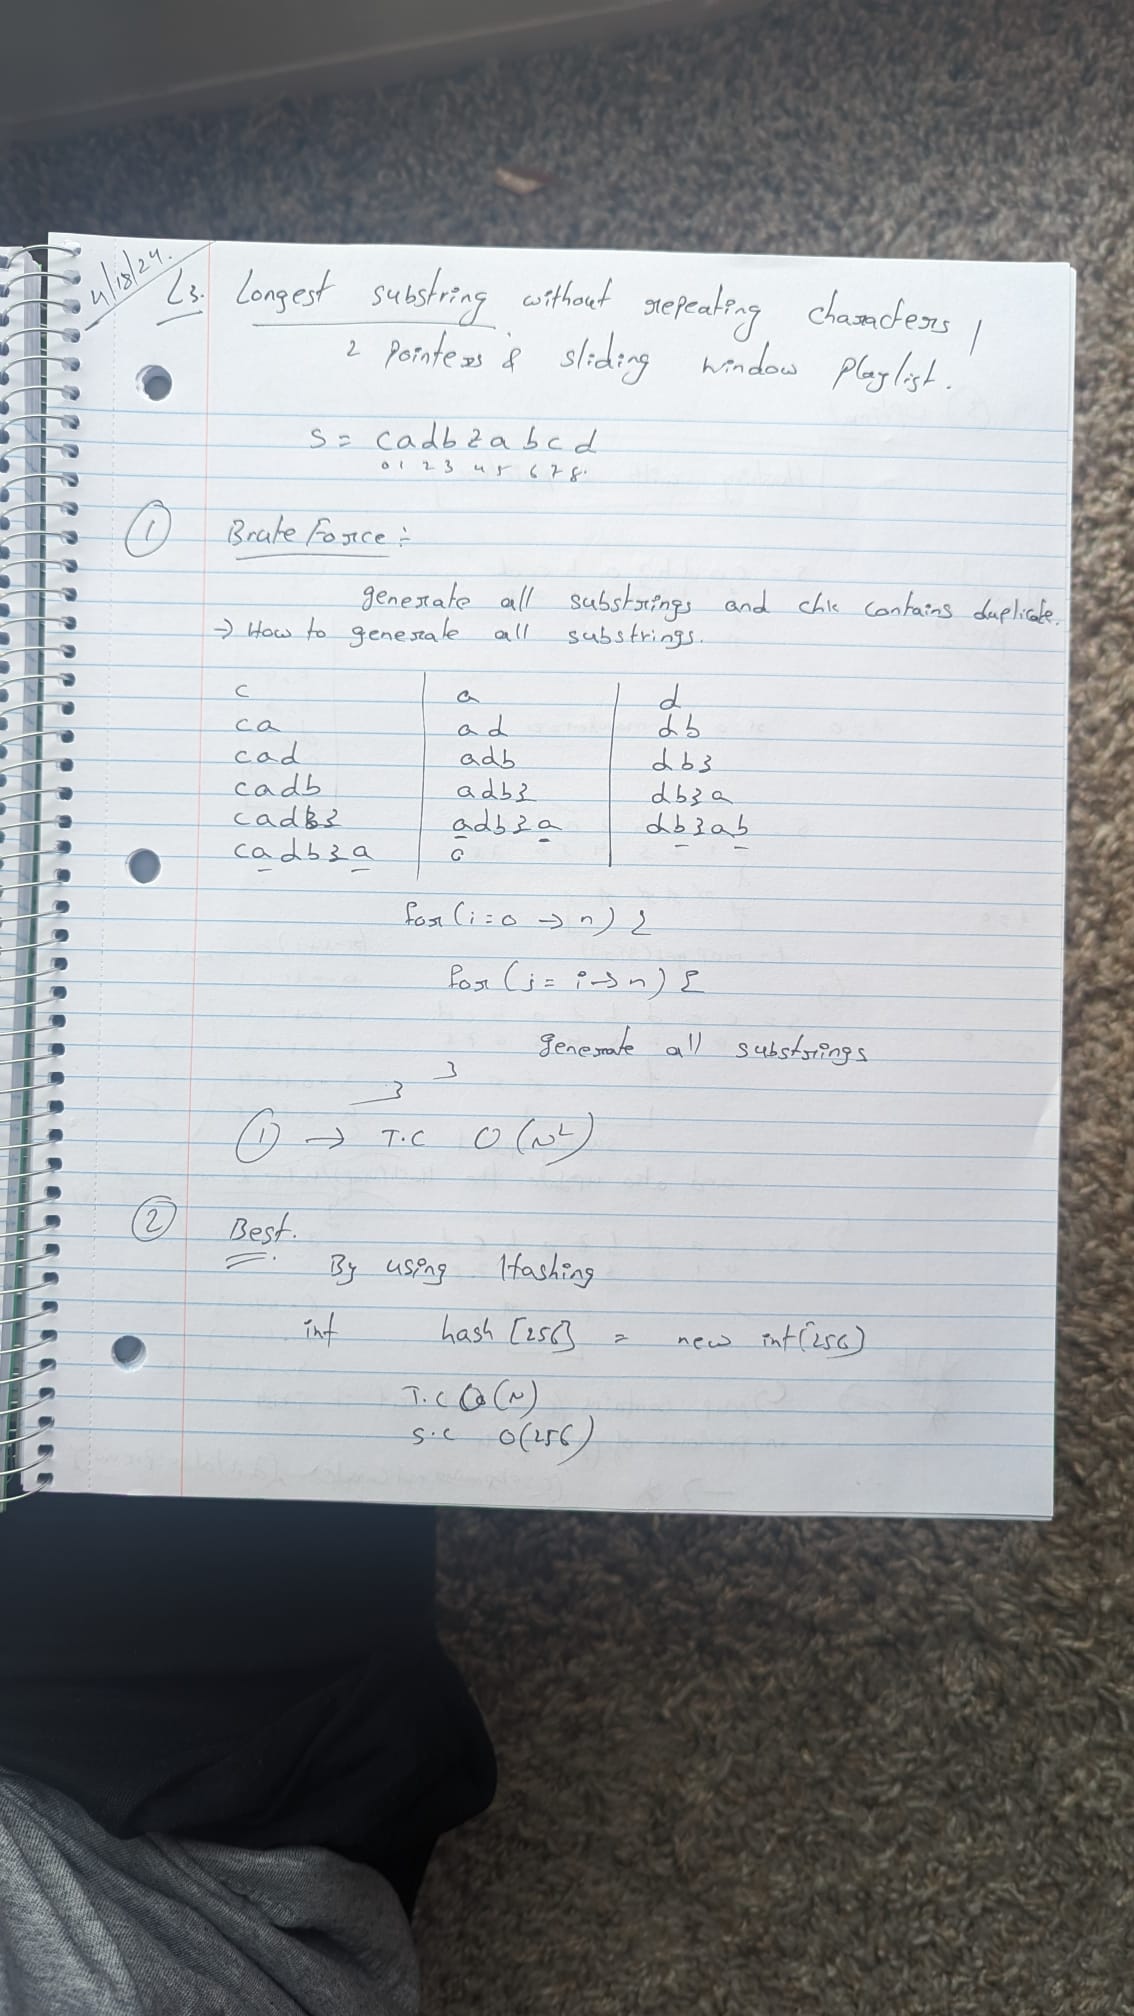 4/18/24.
L3. Longest substring without repeating characters |
2 Pointers & sliding window Playlist.
S = cadbzabcd
0 1 2 3 4 5 6 7 8.
① Brute Force :-
generate all substrings and chk contains duplicate.
→ How to generate all substrings.
c | a | d
ca | ad | db
cad | adb | dbz
cadb | adbz | dbza
cadbz | adbza | dbzab
cadbza
for (i = 0 → n) {
for (j = i → n) {
generate all substrings
}
}
① → T.C O(N²)
② Best.
By using Hashing
int hash [256] = new int[256]
T.C O(N)
S.C O(256)